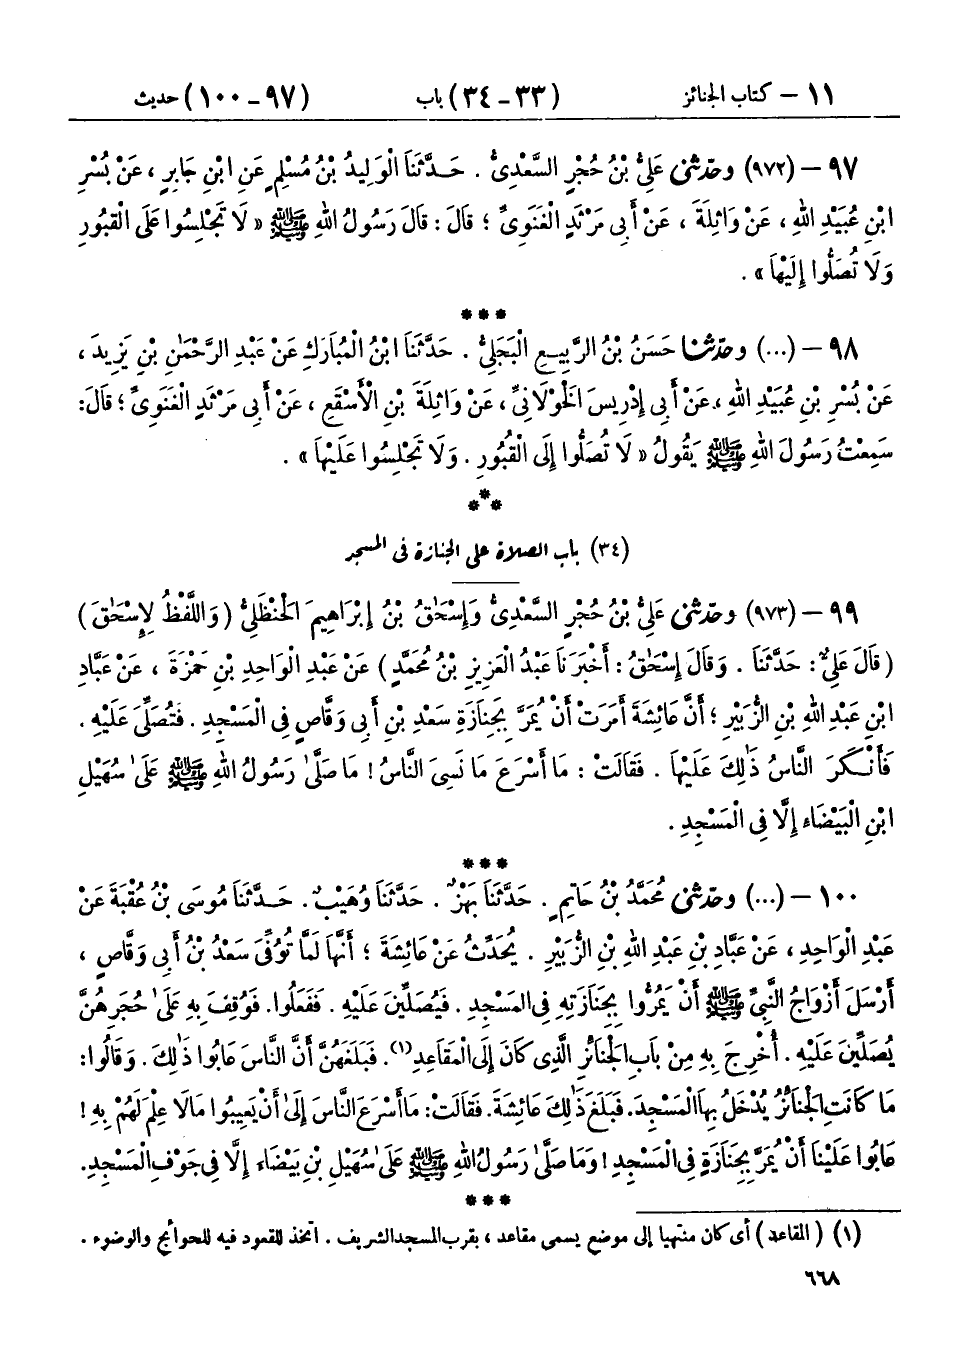 ١١ – كتاب الجنائز (٣٣ – ٣٤) باب (٩٧ – ١٠٠) حديث
٩٧ – (٩٧٢) وحدّثنى عَلِىُّ بْنُ حُجْرٍ السَّعْدِىُّ . حَدَّثَنَا الْوَلِيدُ بْنُ مُسْلِمٍ عَنِ ابْنِ جَابِرٍ ، عَنْ بُسْرِ
ابْنِ عُبَيْدِ اللهِ ، عَنْ وَاثِلَةَ ، عَنْ أَبِى مَرْثَدٍ الْغَنَوِىِّ ؛ قَالَ : قَالَ رَسُولُ اللهِ ﷺ « لَا تَجْلِسُوا عَلَى الْقُبُورِ
وَلَا تُصَلُّوا إِلَيْهَا » .
***
٩٨ – (...) وحدّثنا حَسَنُ بْنُ الرَّبِيعِ الْبَجَلِىُّ . حَدَّثَنَا ابْنُ الْمُبَارَكِ عَنْ عَبْدِ الرَّحْمٰنِ بْنِ يَزِيدَ ،
عَنْ بُسْرِ بْنِ عُبَيْدِ اللهِ ، عَنْ أَبِى إِدْرِيسَ الْخَوْلَانِىِّ ، عَنْ وَاثِلَةَ بْنِ الْأَسْقَعِ ، عَنْ أَبِى مَرْثَدٍ الْغَنَوِىِّ ؛ قَالَ :
سَمِعْتُ رَسُولَ اللهِ ﷺ يَقُولُ « لَا تُصَلُّوا إِلَى الْقُبُورِ . وَلَا تَجْلِسُوا عَلَيْهَا » .
***
(٣٤) باب الصلاة على الجنازة فى المسجد
٩٩ – (٩٧٣) وحدّثنى عَلِىُّ بْنُ حُجْرٍ السَّعْدِىُّ وَإِسْحَاقُ بْنُ إِبْرَاهِيمَ الْحَنْظَلِىُّ ( وَاللَّفْظُ لِإِسْحَاقَ )
( قَالَ عَلِىٌّ : حَدَّثَنَا . وَقَالَ إِسْحَاقُ : أَخْبَرَنَا عَبْدُ الْعَزِيزِ بْنُ مُحَمَّدٍ ) عَنْ عَبْدِ الْوَاحِدِ بْنِ حَمْزَةَ ، عَنْ عَبَّادِ
ابْنِ عَبْدِ اللهِ بْنِ الزُّبَيْرِ ؛ أَنَّ عَائِشَةَ أَمَرَتْ أَنْ يُمَرَّ بِجَنَازَةِ سَعْدِ بْنِ أَبِى وَقَّاصٍ فِى الْمَسْجِدِ . فَتُصَلِّىَ عَلَيْهِ .
فَأَنْكَرَ النَّاسُ ذَلِكَ عَلَيْهَا . فَقَالَتْ : مَا أَسْرَعَ مَا نَسِىَ النَّاسُ ! مَا صَلَّى رَسُولُ اللهِ ﷺ عَلَى سُهَيْلِ
ابْنِ الْبَيْضَاء إِلَّا فِى الْمَسْجِدِ .
***
١٠٠ – (...) وحدّثنى مُحَمَّدُ بْنُ حَاتِمٍ . حَدَّثَنَا بَهْزٌ . حَدَّثَنَا وُهَيْبٌ . حَدَّثَنَا مُوسَى بْنُ عُقْبَةَ عَنْ
عَبْدِ الْوَاحِدِ ، عَنْ عَبَّادِ بْنِ عَبْدِ اللهِ بْنِ الزُّبَيْرِ . يُحَدِّثُ عَنْ عَائِشَةَ ؛ أَنَّهَا لَمَّا تُوُفِّىَ سَعْدُ بْنُ أَبِى وَقَّاصٍ ،
أَرْسَلَ أَزْوَاجُ النَّبِىِّ ﷺ أَنْ يَمُرُّوا بِجَنَازَتِهِ فِى الْمَسْجِدِ . فَيُصَلِّينَ عَلَيْهِ . فَفَعَلُوا . فَوُقِفَ بِهِ عَلَى حُجَرِهِنَّ
يُصَلِّينَ عَلَيْهِ . أُخْرِجَ بِهِ مِنْ بَابِ الْجَنَائِزِ الَّذِى كَانَ إِلَى الْمَقَاعِدِ(١). فَبَلَغَهُنَّ أَنَّ النَّاسَ عَابُوا ذَلِكَ . وَقَالُوا :
مَا كَانَتِ الْجَنَائِزُ يُدْخَلُ بِهَا الْمَسْجِدَ . فَبَلَغَ ذَلِكَ عَائِشَةَ . فَقَالَتْ : مَا أَسْرَعَ النَّاسَ إِلَى أَنْ يَعِيبُوا مَالَا عِلْمَ لَهُمْ بِهِ !
عَابُوا عَلَيْنَا أَنْ يُمَرَّ بِجَنَازَةٍ فِى الْمَسْجِدِ ! وَمَا صَلَّى رَسُولُ اللهِ ﷺ عَلَى سُهَيْلِ بْنِ بَيْضَاء إِلَّا فِى جَوْفِ الْمَسْجِدِ .
***
(١) ( المقاعد ) أى كان منتهيا إلى موضع يسمى مقاعد ، بقرب المسجد الشريف . اتخذ للقعود فيه للحوائج والوضوء .
٦٦٨